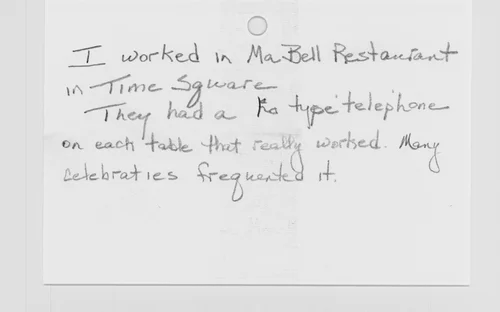 I worked in Ma Bell Restaurant
in Time Sgware
They had a type telephone
on each table that really worked. Many
celebraties frequented it.